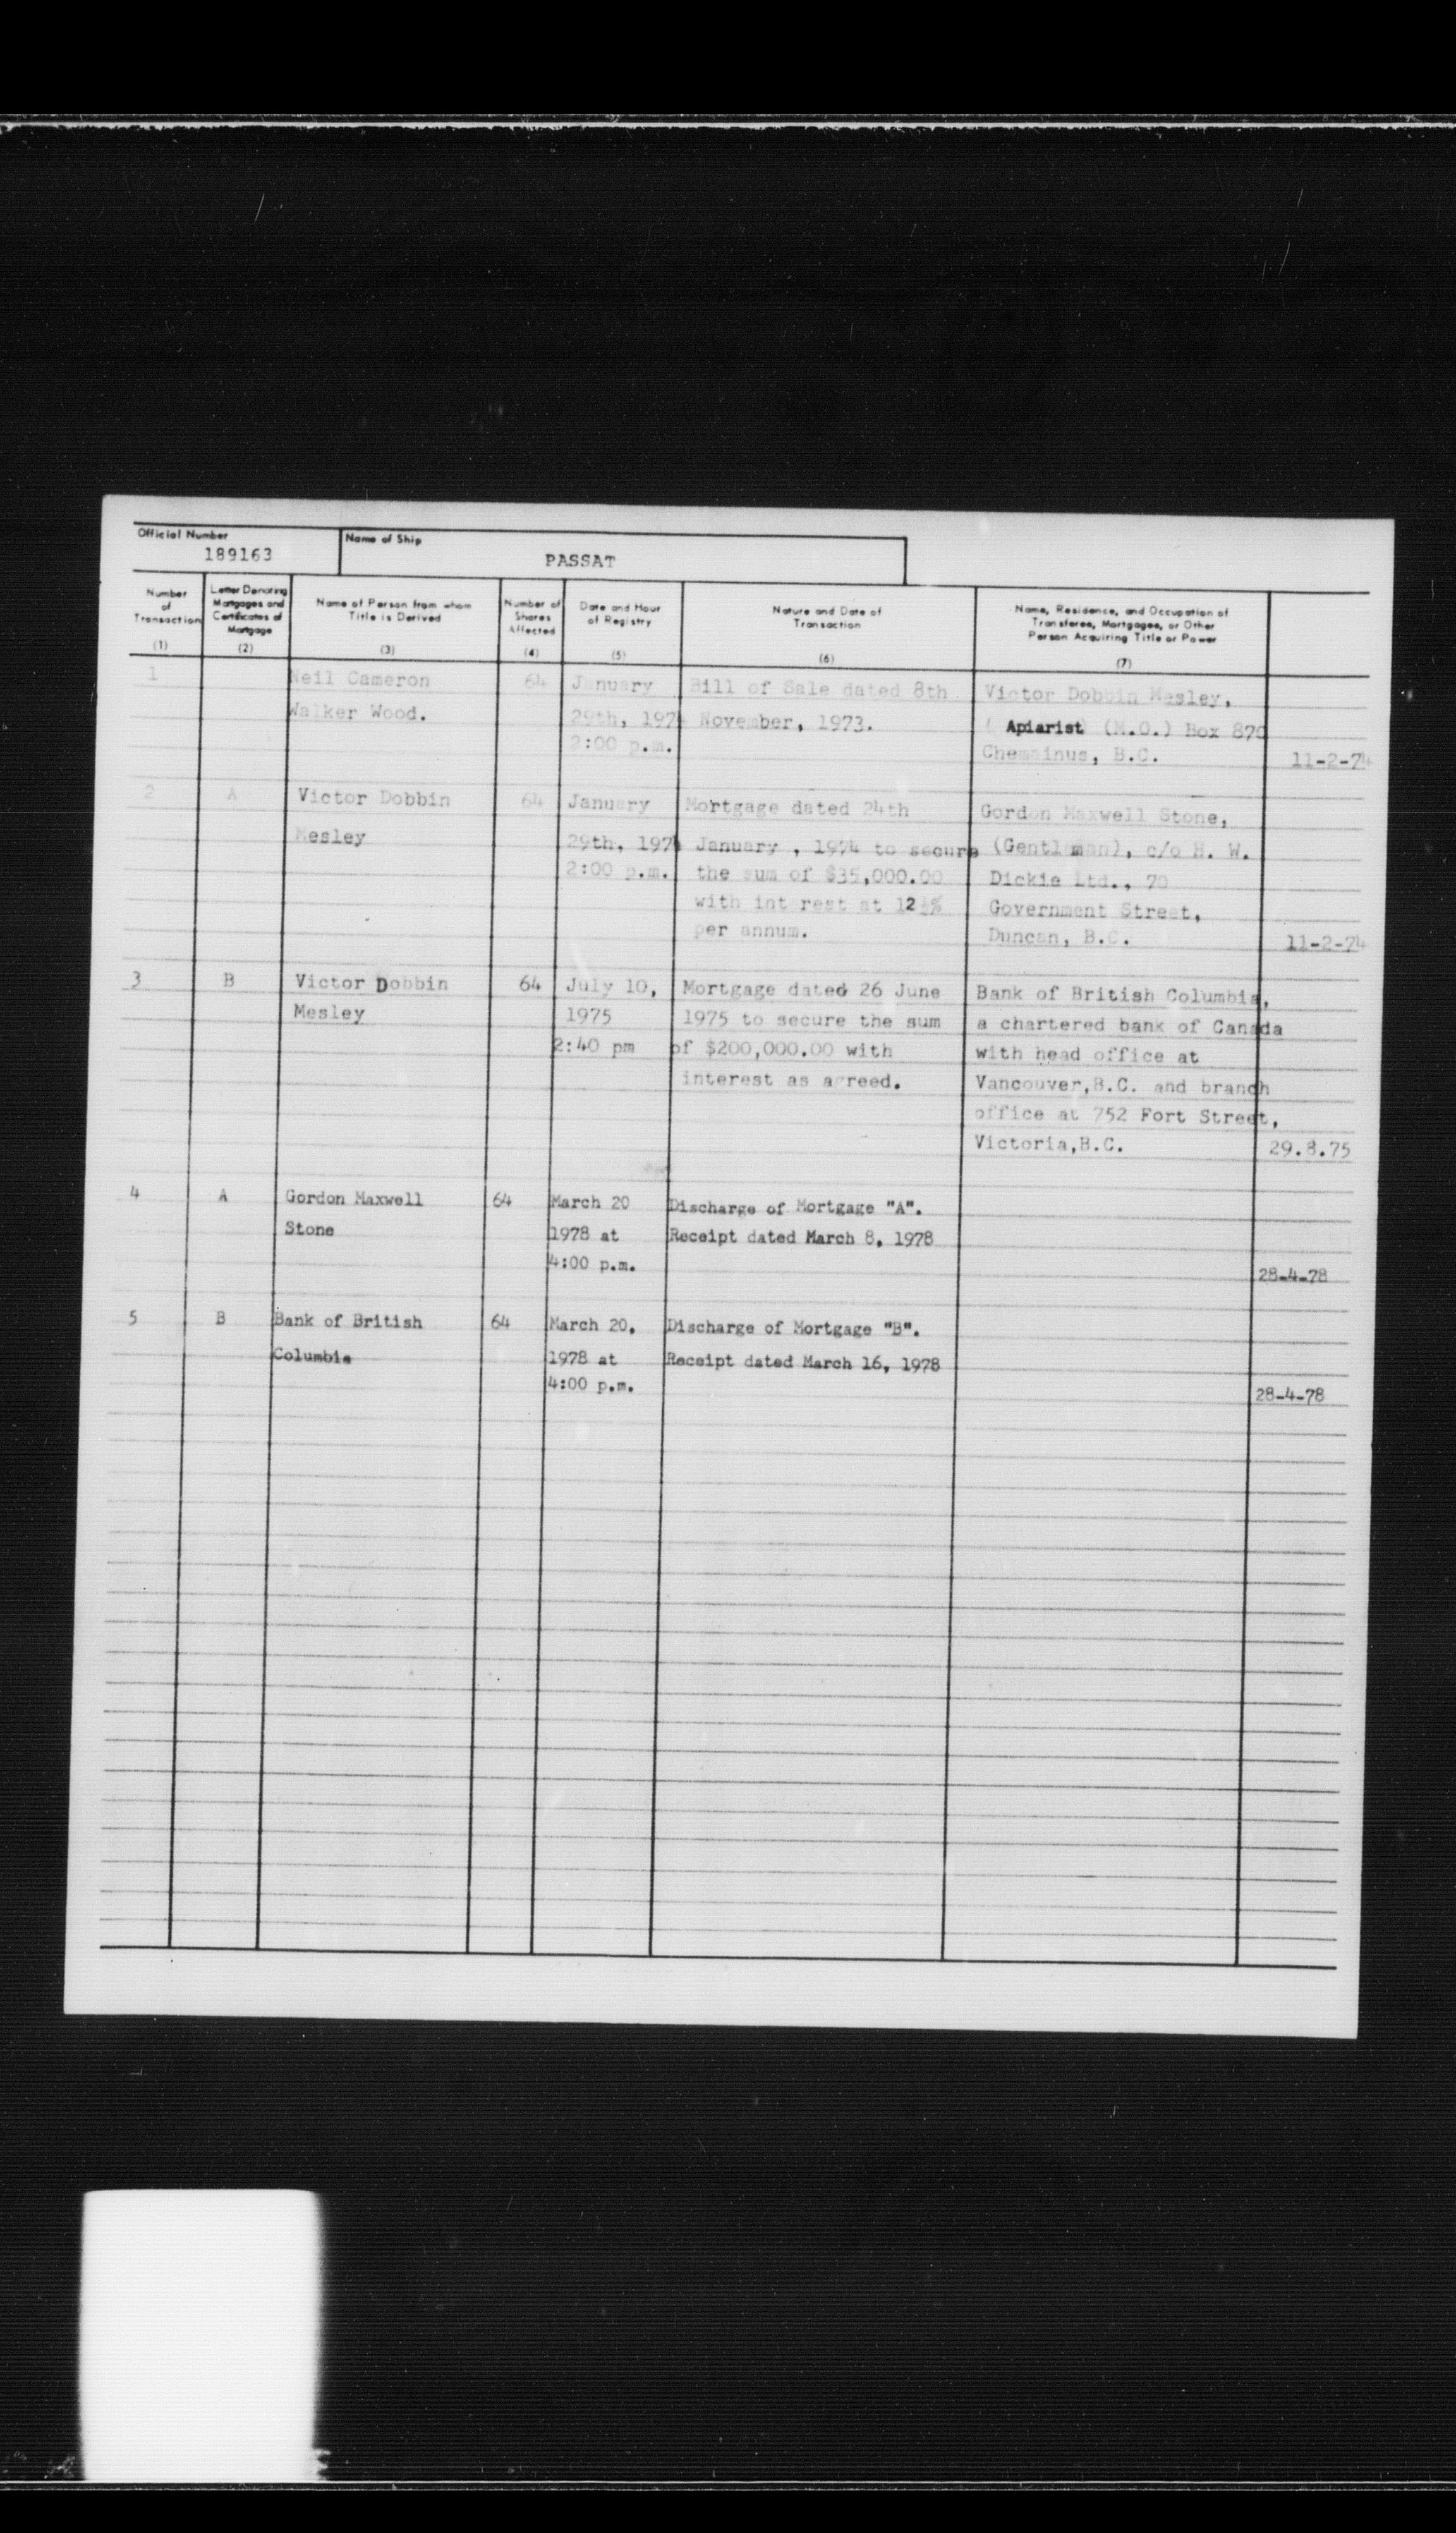 Official Number
189163
Name of Ship
PASSAT
Number of Transaction (1)
Letter Denoting Mortgages and Certificates of Mortgage (2)
Name of Person from whom Title is Derived (3)
Number of Shares Affected (4)
Date and Hour of Registry (5)
Nature and Date of Transaction (6)
Name, Residence, and Occupation of Transferee, Mortgagee, or Other Person Acquiring Title or Power (7)
1 Neil Cameron 64 January Bill of Sale dated 8th Victor Dobbin Mesley,
Walker Wood. 29th, 1974 November, 1973. (Apiarist (M.O.) Box 870
2:00 p.m. Chemainus, B.C. 11-2-74
2 A Victor Dobbin 64 January Mortgage dated 24th Gordon Maxwell Stone,
Mesley 29th, 1974 January , 1974 to secure (Gentleman), c/o H. W.
2:00 p.m. the sum of $35,000.00 Dickie Ltd., 70
with interest at 12½% Government Street,
per annum. Duncan, B.C. 11-2-74
3 B Victor Dobbin 64 July 10, Mortgage dated 26 June Bank of British Columbia,
Mesley 1975 1975 to secure the sum a chartered bank of Canada
2:40 pm of $200,000.00 with with head office at
interest as agreed. Vancouver,B.C. and branch
office at 752 Fort Street,
Victoria,B.C. 29.8.75
4 A Gordon Maxwell 64 March 20 Discharge of Mortgage "A".
Stone 1978 at Receipt dated March 8, 1978
4:00 p.m. 28-4-78
5 B Bank of British 64 March 20, Discharge of Mortgage "B".
Columbia 1978 at Receipt dated March 16, 1978
4:00 p.m. 28-4-78